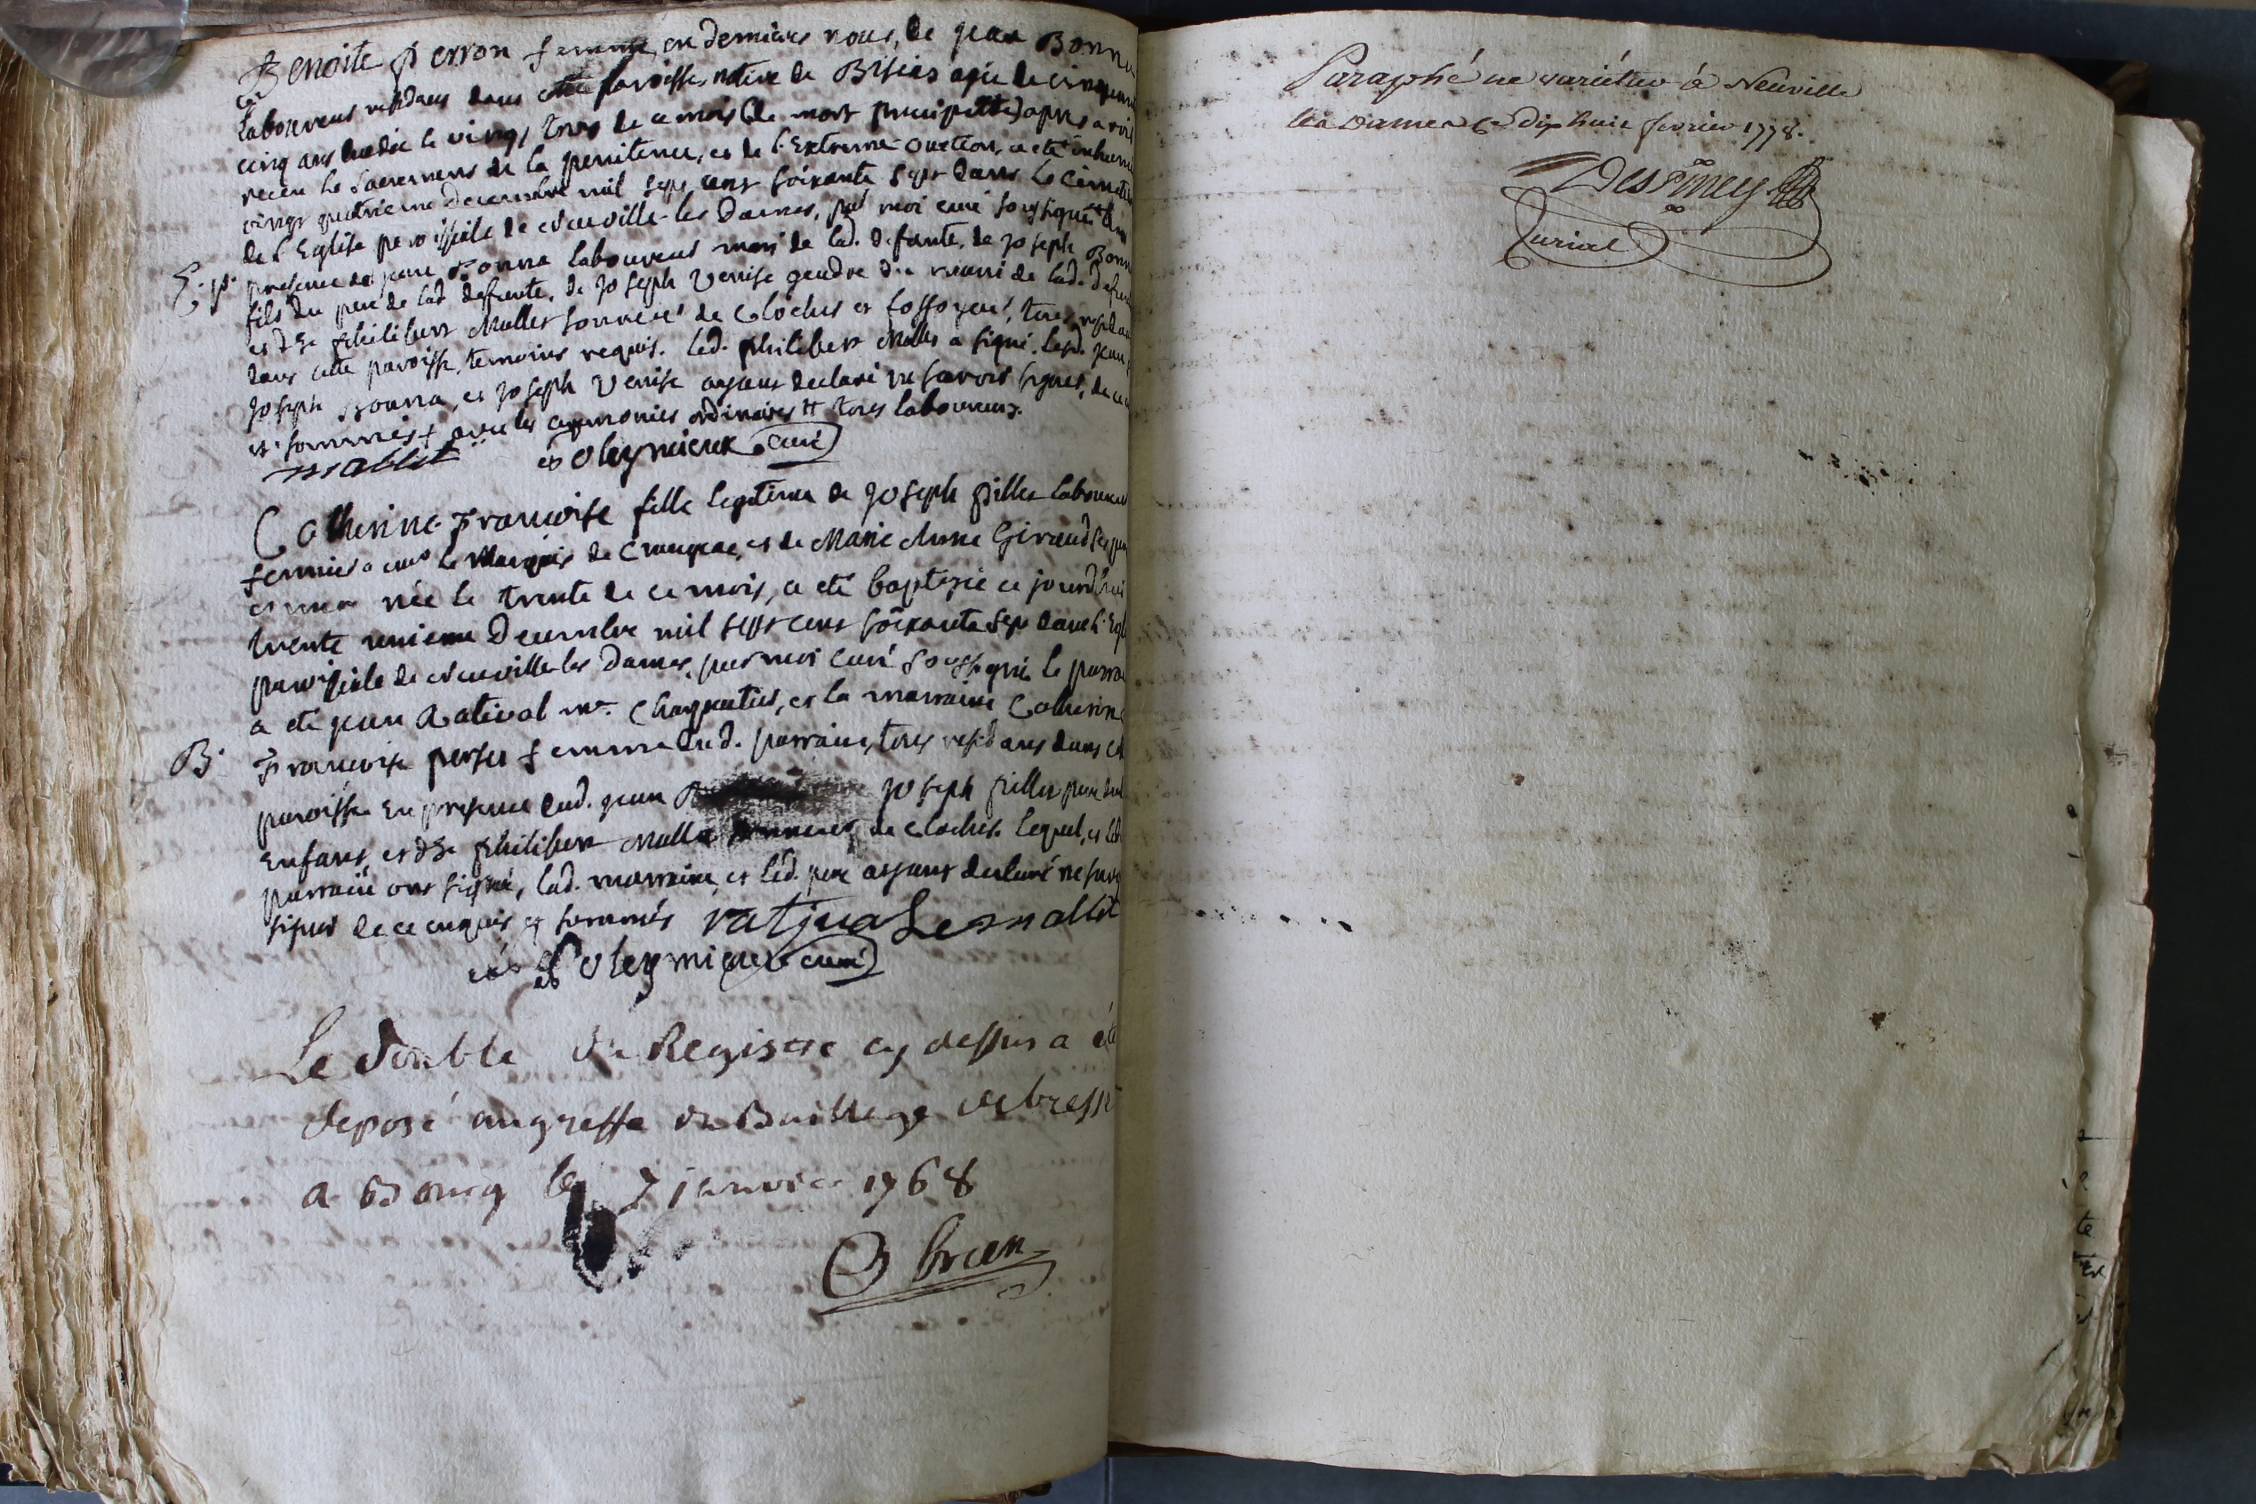 Benoite Perron femme en dernieres noces de jean Bonna
laboureur residans dans cette paroisse, native de Bisias agée de cinquante
cinq ans decedée le vingt trois de ce mois (de mort precipitée) apres avoir
receu le sacremens de la penitence, et de l'Extreme onction, a eté inhumé
vingt quatrieme decembre mil sept cent soixante sept dans le cimetiere
de l'Eglise paroissiale de Neuville-les Dames, par moi curé soussigné en
S. p. presence de jean Bonna laboureur mari de lad. defunte, de joseph Bonna
fils du pere de lad. defunte, de joseph Venise gendre du mari de lad. defunte
et de Sr philibert Mallet sonneur de cloches et fossoyeur, tous residans
dans cette paroisse, temoins requis. led. philibert Mallet a signé. lesd. jean,
joseph Bonna, et joseph Venise ayans declaré ne savoir signer, de ce
et sommés + avec les ceremonies ordinaires # tous laboureurs.
mallet et Poleymieux curé
Catherine Françoise fille legitime de joseph pillet laboureur
fermier a mr le Marquis de Crangeac, et de Marie Anne Giraud ses pere
et mere née le trente de ce mois, a eté baptisée ce jourd'hui
trente unieme decembre mil sept cent soixante sept dans l'Eglise
paroissiale de Neuville les Dames, par moi curé soussigné le parrain
a eté jean Rativol me. Charpentier, et la marraine Catherine
B. Françoise femme dud. parrain, tous residans dans cette
paroisse En presence dud. jean joseph pillet pere dud.
Enfant, et de Sr philibert Mallet sonneur de cloches lequel, et led.
parrain ont signé, lad. marraine, et led. pere ayans declaré ne savoir
signer de ce enquis et sommés mallet
Poleymieux curé
Le double du Registre cy dessus a été
deposé au greffe du Bailliage de bresse
a Bourg le 7 janvier 1768
Paraphé ne varietur à Neuville
les Dames ce dix huit fevrier 1778.
curial